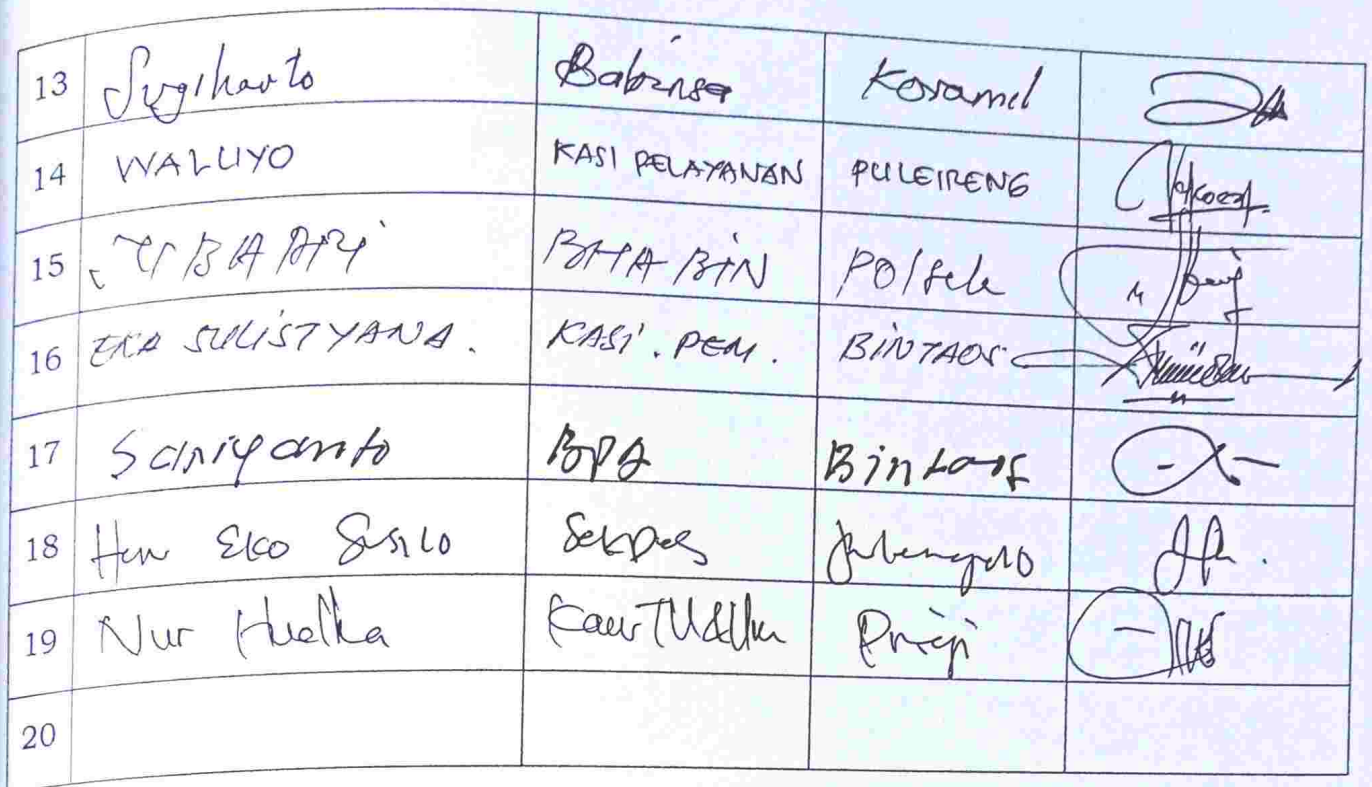 13 Sugiharto Babinsa Koramil
14 WALUYO KASI PELAYANAN PULEIRENG
15 BHABIN Polsek
16 EKA SULISTYANA. KASI. PEM. BINTAOS
17 Sariyanto BPD Bintaos
18 Eko Susilo Sekdes
19 Nur Kaur
20